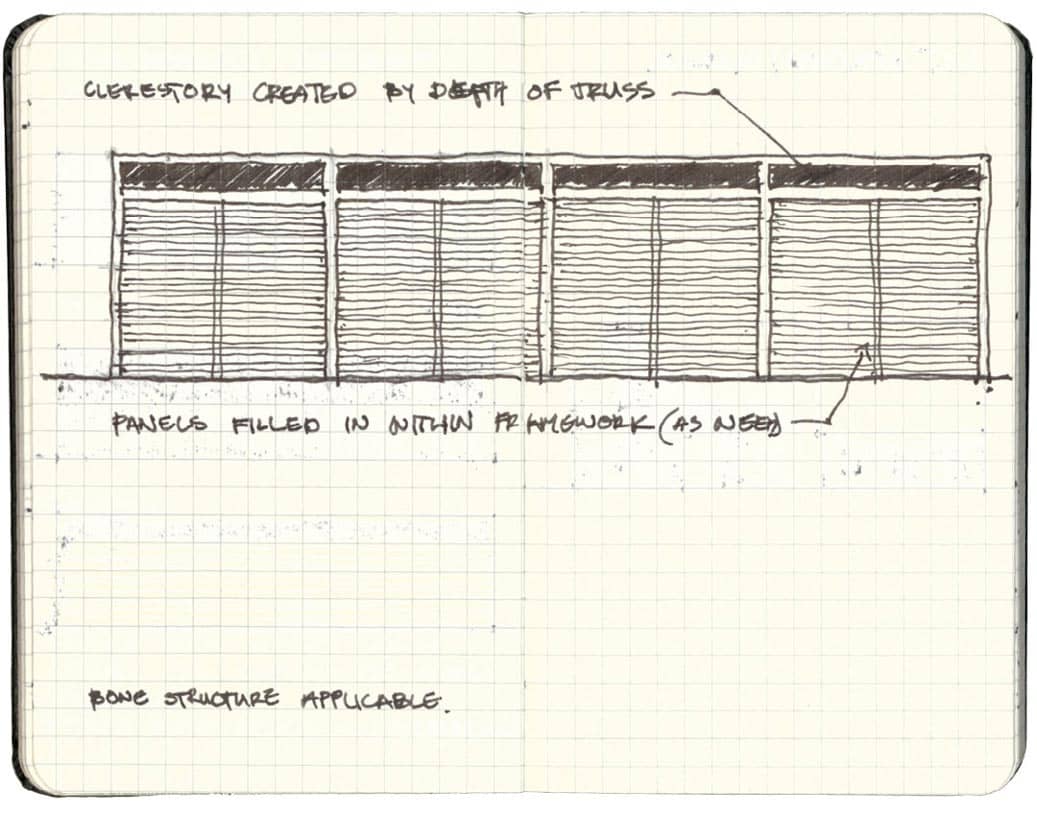 CLERESTORY CREATED BY DEPTH OF TRUSS
PANELS FILLED IN WITHIN FRAMEWORK (AS NEED)
BONE STRUCTURE APPLICABLE.